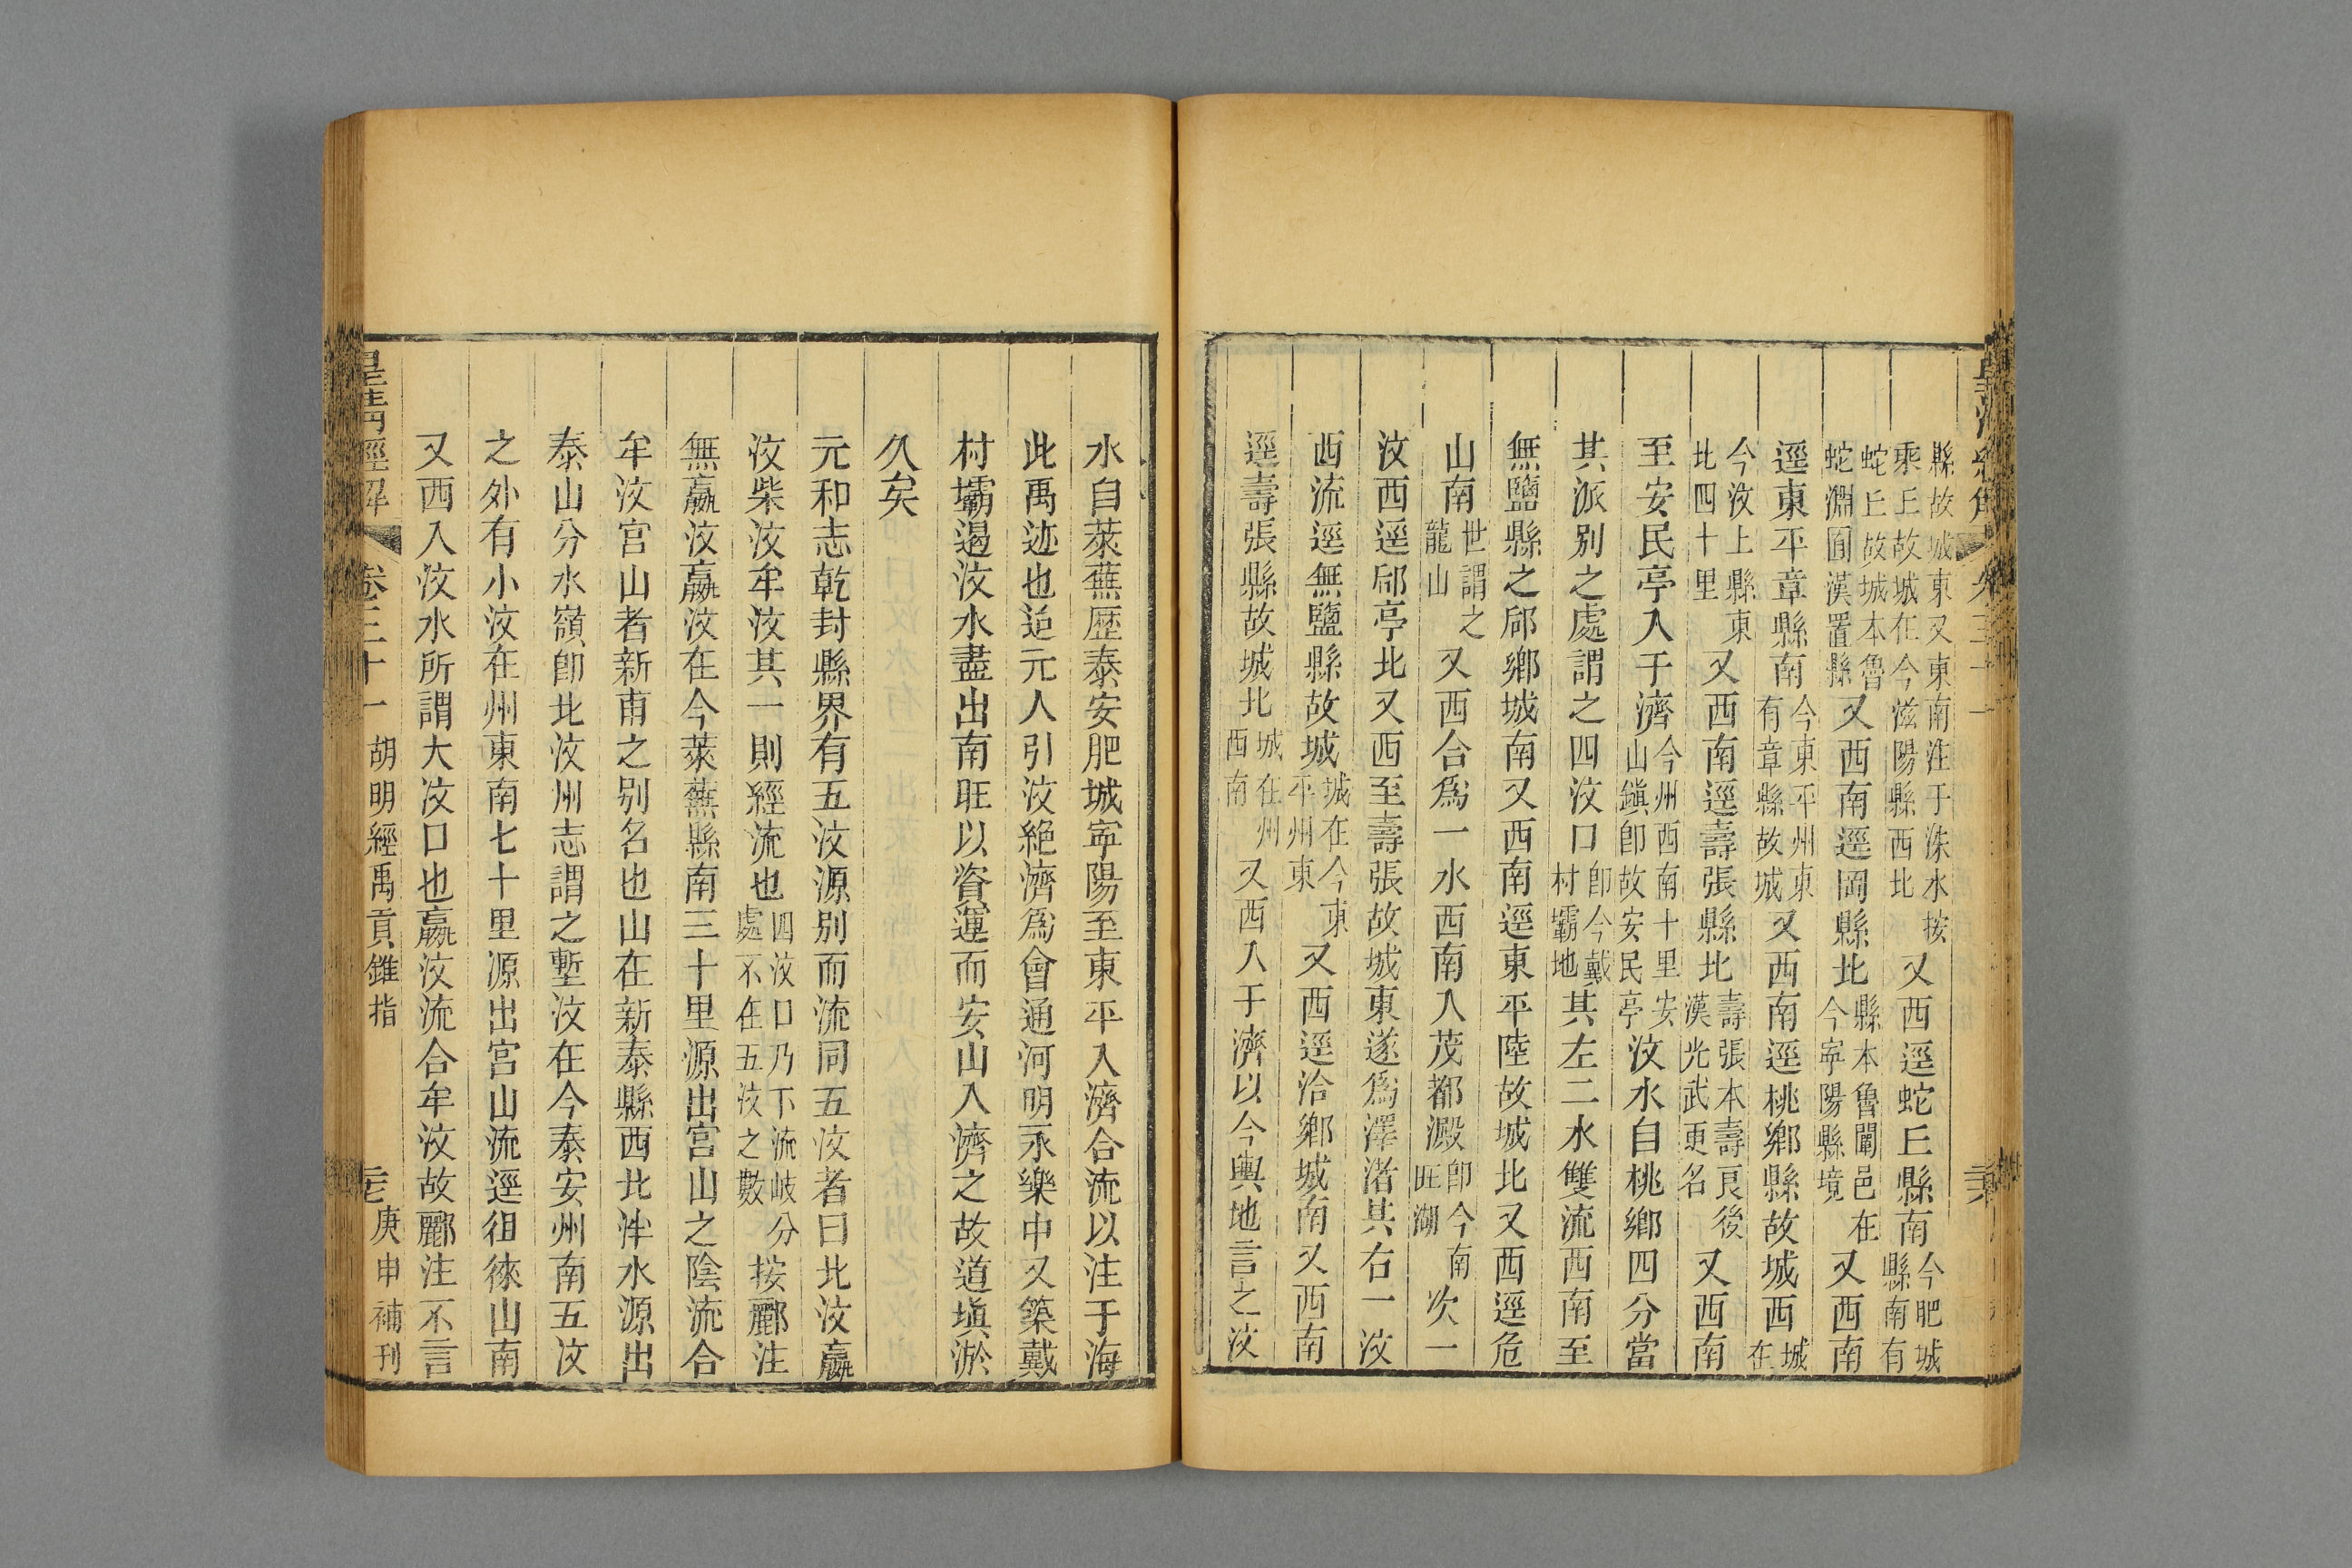 縣故城東又東南注于洙水按乘丘故城在今滋陽縣西北又西逕蛇丘縣南今肥城縣南有
蛇丘故城本魯蛇淵囿漢置縣又西南逕岡縣北縣本魯闡邑在今寧陽縣境又西南
逕東平章縣南今東平州東有章縣故城又西南逕桃鄉縣故城西城在
今汶上縣東北四十里又西南逕壽張縣北壽張本壽良後漢光武更名又西南
至安民亭入于濟今州西南十里安山鎭卽故安民亭汶水自桃鄉四分當
其派別之處謂之四汶口卽今戴村壩地其左二水雙流西南至
無鹽縣之郈鄉城南又西南逕東平陸故城北又西逕危
山南世謂之龍山又西合爲一水西南入茂都澱卽今南旺湖次一
汶西逕郈亭北又西至壽張故城東遂爲澤渚其右一汶
西流逕無鹽縣故城城在今東平州東又西逕洽鄉城南又西南
逕壽張縣故城北城在州西南又西入于濟以今輿地言之汶
水自萊蕪歷泰安肥城寧陽至東平入濟合流以注于海
此禹迹也迨元人引汶絕濟爲會通河明永樂中又築戴
村壩遏汶水盡出南旺以資運而安山入濟之故道塡淤
久矣
元和志乾封縣界有五汶源別而流同五汶者曰北汶嬴
汶柴汶牟汶其一則經流也四汶口乃下流岐分處不在五汶之數按酈注
無嬴汶嬴汶在今萊蕪縣南三十里源出宮山之陰流合
牟汶宮山者新甫之別名也山在新泰縣西北泮水源出
泰山分水嶺卽北汶州志謂之塹汶在今泰安州南五汶
之外有小汶在州東南七十里源出宮山流逕徂徠山南
又西入汶水所謂大汶口也嬴汶流合牟汶故酈注不言
皇淸經解 卷三十一 胡明經禹貢錐指 庚申補刊